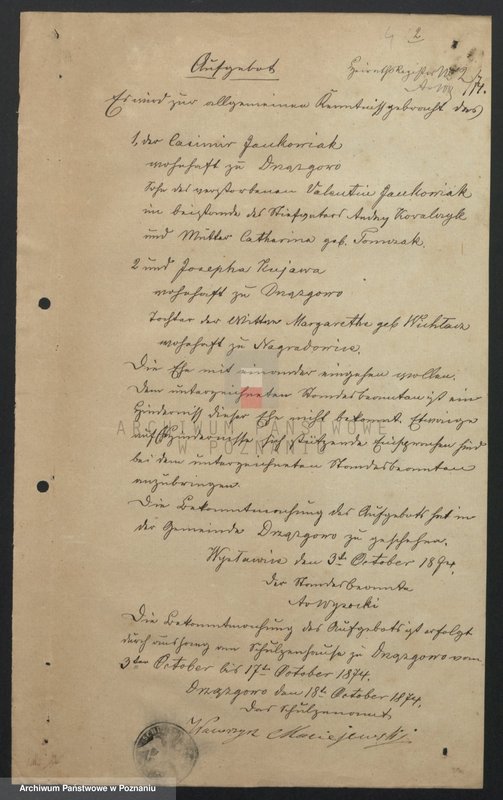 2
Aufgebot
Heiraths Register No 2/74.
Es wird zur allgemeinen Kenntniss gebracht das
1, der Casimir Jankowiak
wohnhaft zu Drązgowo
Sohn des verstorbenen Valentin Jankowiak
im beistande des Stiefvaters
und Mutter Catharina geb. Tomczak.
2 und Josepha Kujawa
wohnhaft zu Drązgowo
Tochter der Wittwe Margarethe geb
wohnhaft zu Nagradowice.
Die Ehe mit einander eingehen wollen.
Dem unterzeichneten Standesbeamten ist ein
Hinderniss dieser Ehe nicht bekannt. Etwaige
auf Hindernisse sich stützende Einsprachen sind
bei dem unterzeichneten Standesbeamten
anzubringen.
Die Bekanntmachung des Aufgebots hat in
der Gemeinde Drązgowo zu geschehen.
den 3t October 1874.
Der Standesbeamte
Die Bekanntmachung des Aufgebots ist erfolgt
durch aushang am Schulzenhause zu Drązgowo vom
3ten October bis 17t October 1874.
Drązgowo den 18t October 1874.
Das Schulzenamt
Wawrzyn Maciejewski
ARCHIWUM PAŃSTWOWE
W POZNANIU
Archiwum Państwowe w Poznaniu